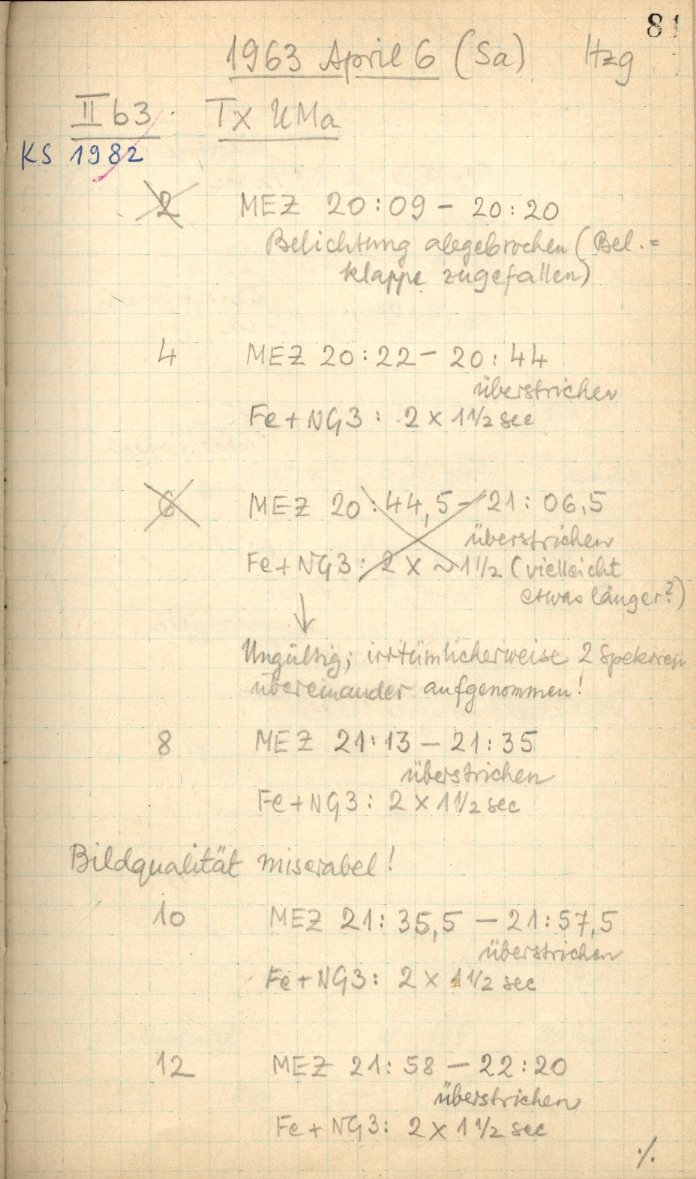 81
1963 April 6 (Sa) Hzg
II b3 TX UMa
KS 1982
2 MEZ 20:09 - 20:20
Belichtung abgebrochen (Bel.=
klappe zugefallen)
4 MEZ 20:22 - 20:44
überstrichen
Fe+NG3: 2 x 1 1/2 sec
6 MEZ 20:44,5 - 21:06,5
überstrichen
Fe+NG3: 2 x ~1 1/2 (vielleicht
etwas länger?)
↓
Ungültig; irrtümlicherweise 2 Spektren
übereinander aufgenommen!
8 MEZ 21:13 - 21:35
überstrichen
Fe+NG3: 2 x 1 1/2 sec
Bildqualität miserabel!
10 MEZ 21:35,5 - 21:57,5
überstrichen
Fe+NG3: 2 x 1 1/2 sec
12 MEZ 21:58 - 22:20
überstrichen
Fe+NG3: 2 x 1 1/2 sec
./.